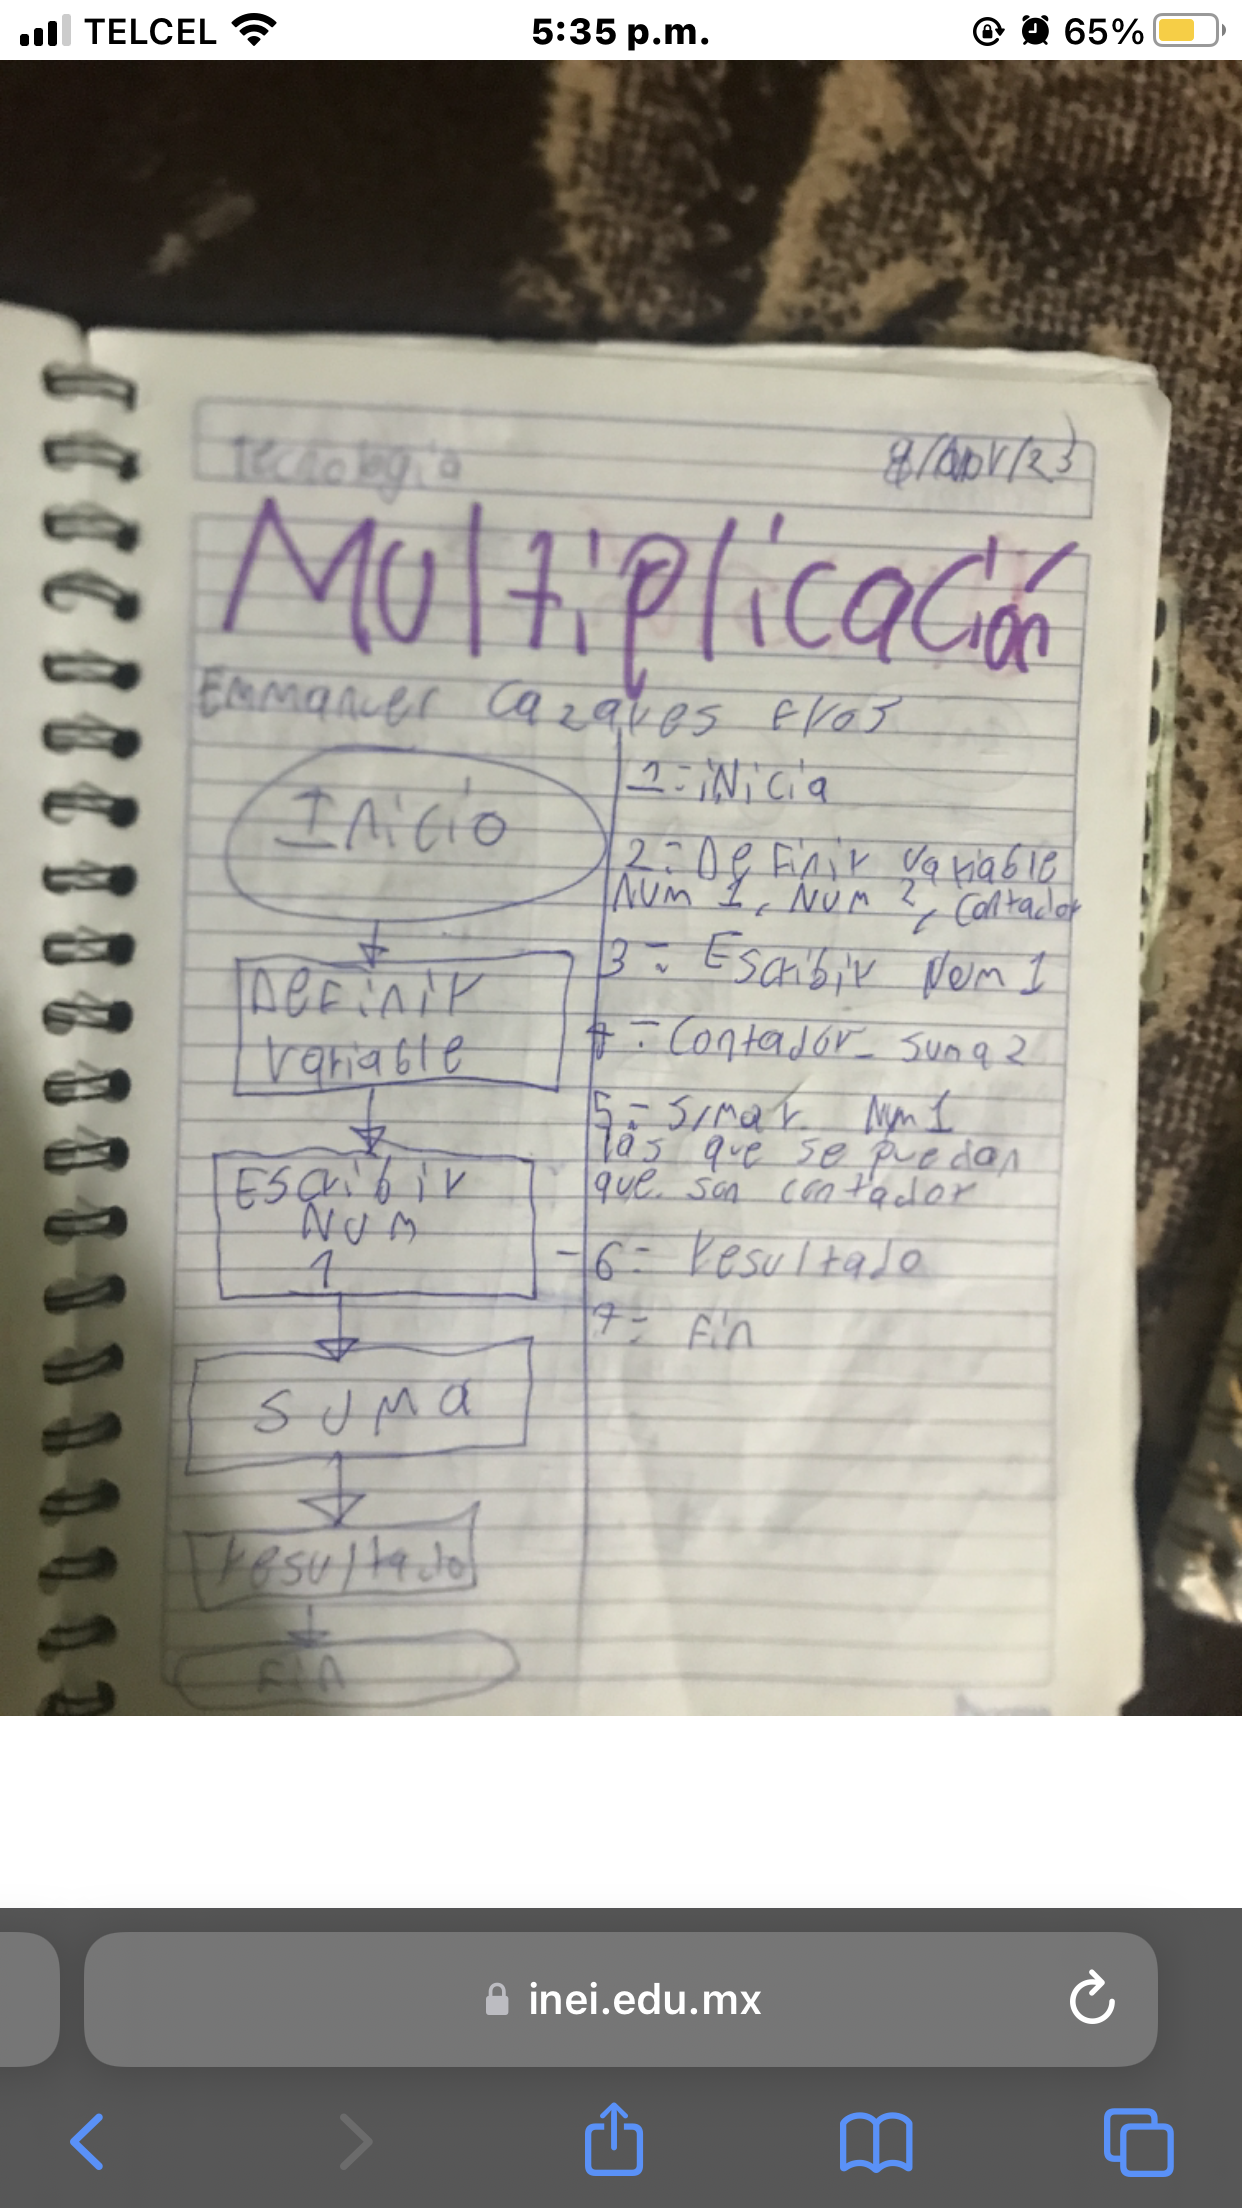 TELCEL
5:35 p.m.
65%
tecnología
Multiplicación
Cazares
Inicio
Definir
variable
Escribir
Num
1
suma
resultado
Fin
1=inicia
2=Definir variable
Num 1, Num 2, contador
3= Escribir Num 1
4=Contador suma 2
5= Sumar Num 1
las que se puedan
que son contador
6= resultado
7= Fin
inei.edu.mx